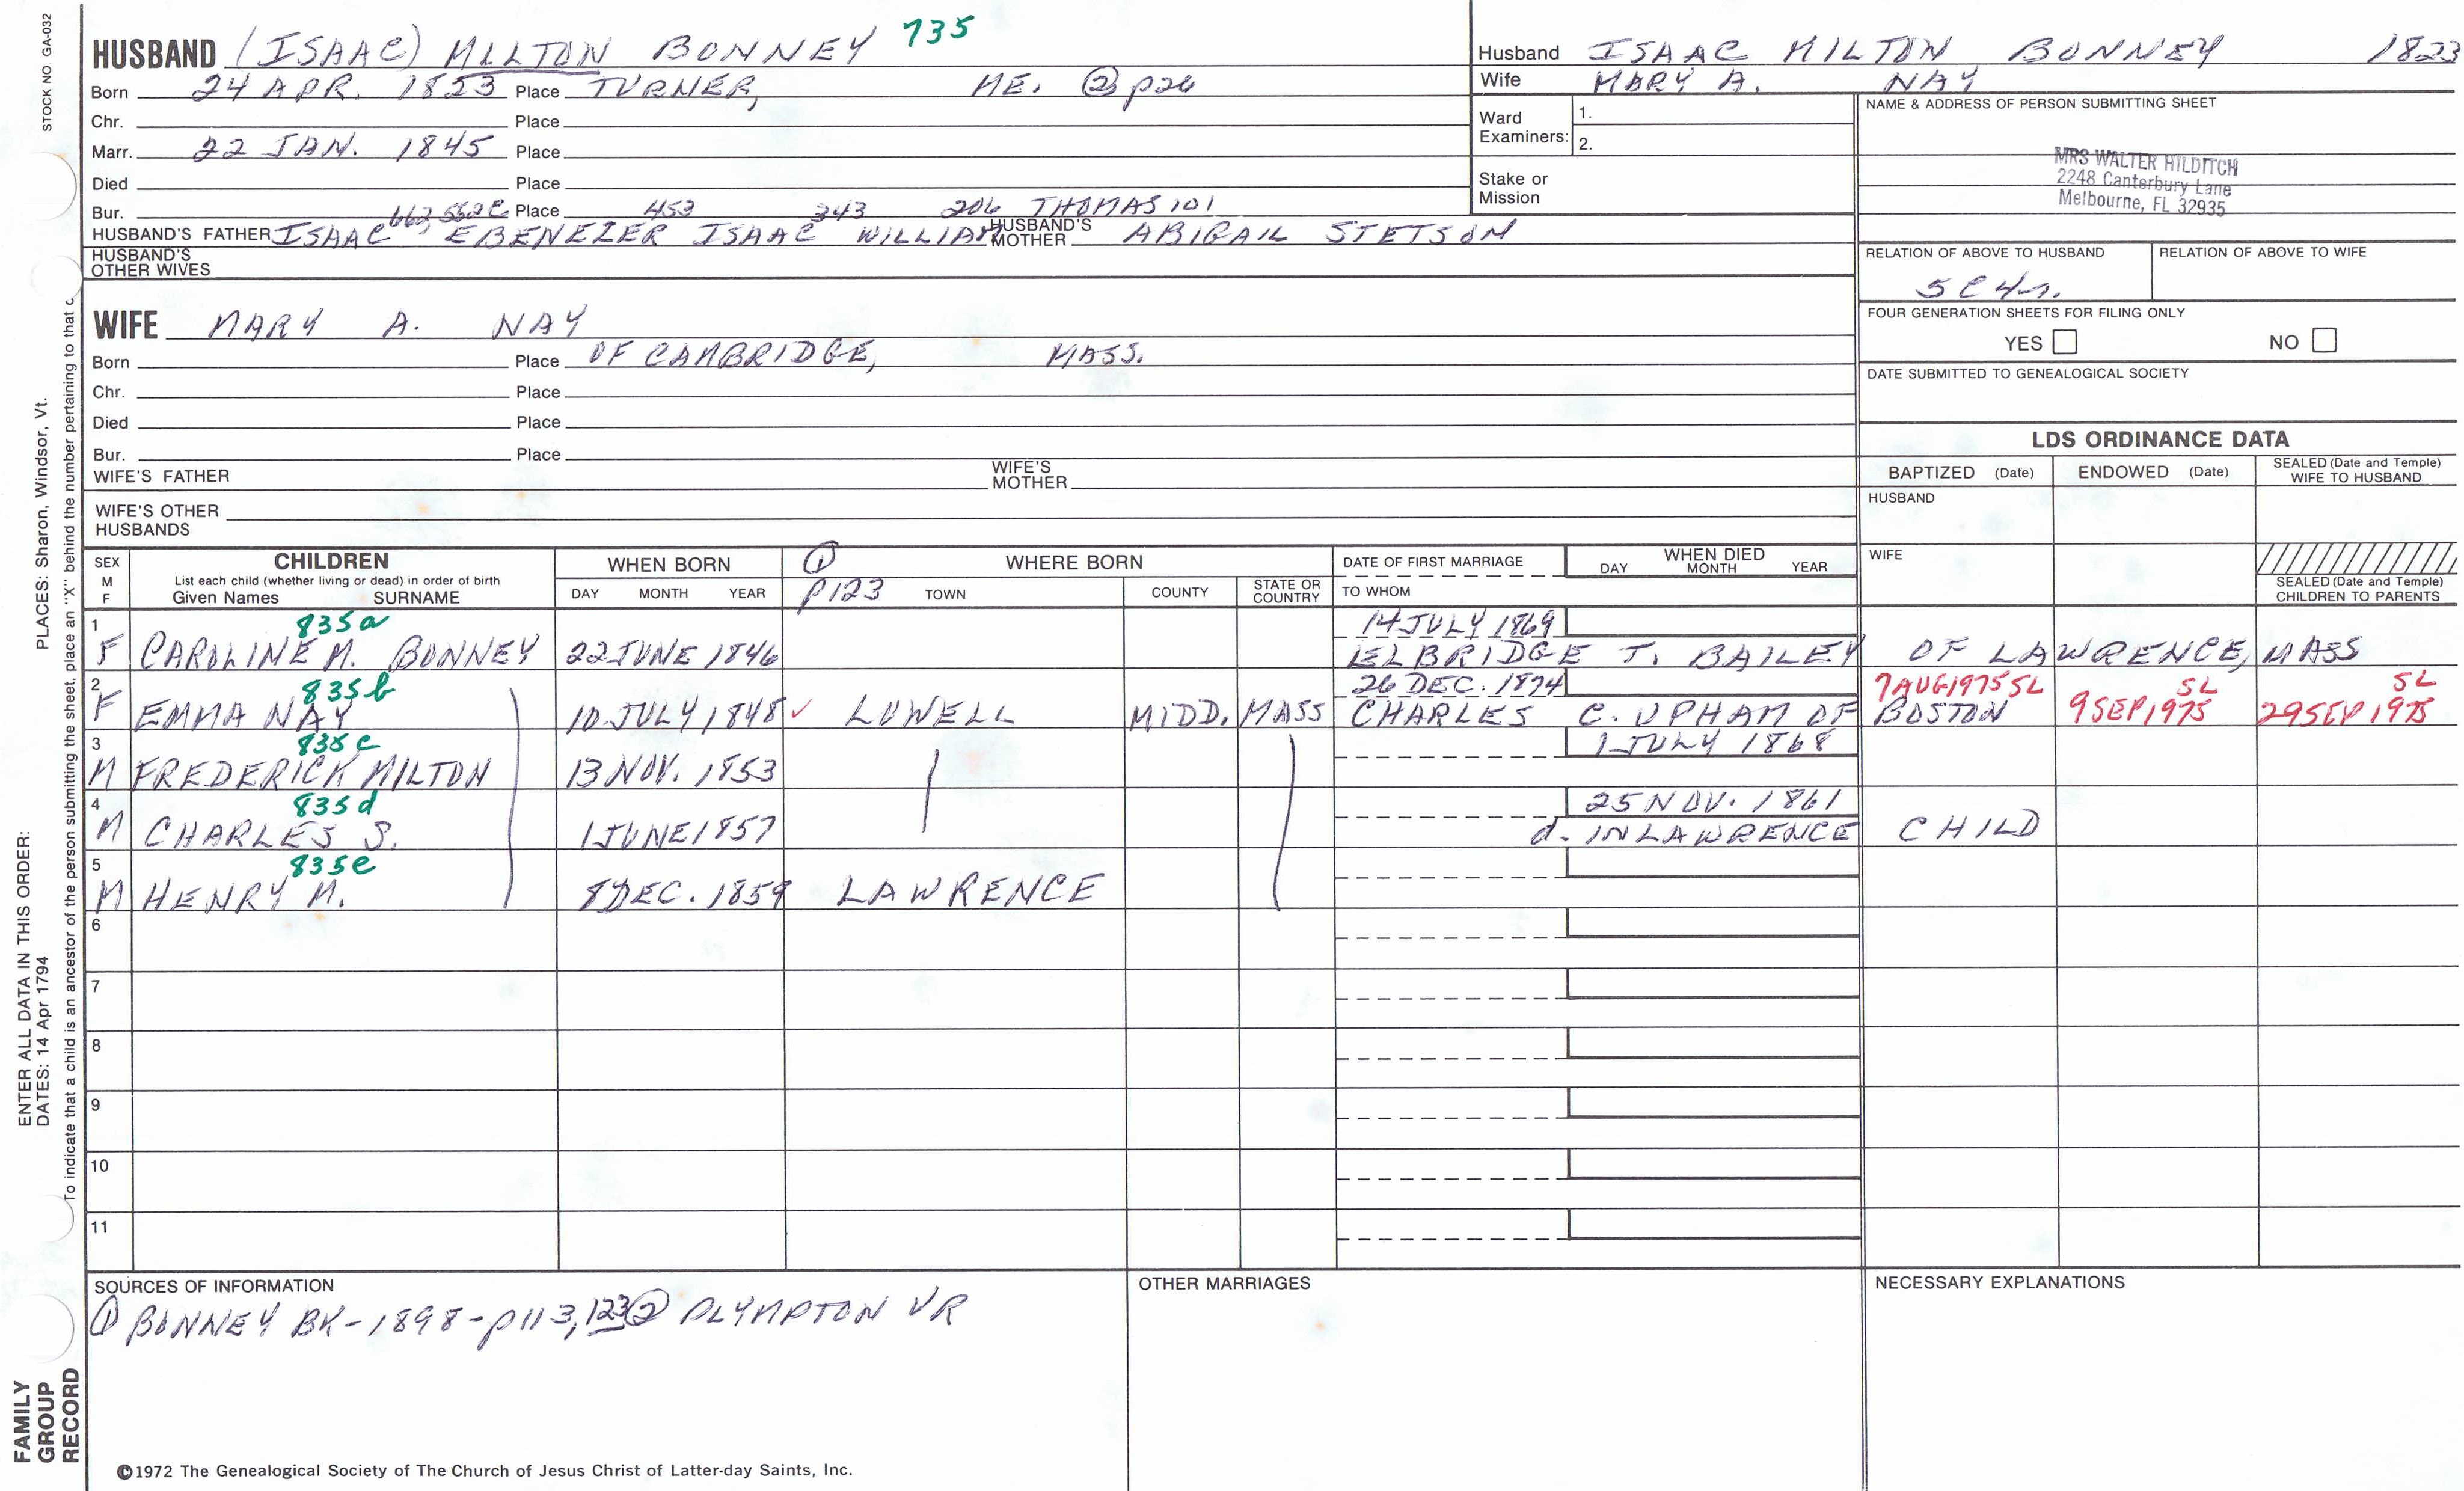 STOCK NO GA-032
HUSBAND (ISAAC) MILTON BONNEY 735
Born 24 APR. 1823 Place TURNER, ME. ② p26
Chr. Place
Marr. 22 JAN. 1845 Place
Died Place
Bur. 662, 552C Place 453 343 206 THOMAS 101
HUSBAND'S FATHER ISAAC EBENEZER ISAAC WILLIAM HUSBAND'S MOTHER ABIGAIL STETSON
HUSBAND'S OTHER WIVES
WIFE MARY A. NAY
Born Place OF CAMBRIDGE, MASS.
Chr. Place
Died Place
Bur. Place
WIFE'S FATHER WIFE'S MOTHER
WIFE'S OTHER HUSBANDS
Husband ISAAC MILTON BONNEY 1823
Wife MARY A. NAY
Ward Examiners: 1.
2.
Stake or Mission
NAME & ADDRESS OF PERSON SUBMITTING SHEET
MRS WALTER HILDITCH
2248 Canterbury Lane
Melbourne, FL 32935
RELATION OF ABOVE TO HUSBAND RELATION OF ABOVE TO WIFE
5C4r.
FOUR GENERATION SHEETS FOR FILING ONLY
YES NO
DATE SUBMITTED TO GENEALOGICAL SOCIETY
LDS ORDINANCE DATA
BAPTIZED (Date) ENDOWED (Date) SEALED (Date and Temple) WIFE TO HUSBAND
HUSBAND
WIFE
SEALED (Date and Temple) CHILDREN TO PARENTS
SEX M F
CHILDREN
List each child (whether living or dead) in order of birth
Given Names SURNAME
WHEN BORN
DAY MONTH YEAR
① p123
WHERE BORN
TOWN COUNTY STATE OR COUNTRY
DATE OF FIRST MARRIAGE
TO WHOM
WHEN DIED
DAY MONTH YEAR
1 835a 14 JULY 1869
F CAROLINE M. BONNEY 22 JUNE 1846 ELBRIDGE T. BAILEY OF LAWRENCE, MASS
2 835b 26 DEC. 1874 7 AUG 1975 SL SL SL
F EMMA NAY 10 JULY 1848 ✓ LOWELL MIDD. MASS CHARLES C. UPHAM OF BOSTON 9 SEP 1975 29 SEP 1975
3 835c 1 JULY 1868
M FREDERICK MILTON 13 NOV. 1853
4 835d 25 NOV. 1861
M CHARLES S. 1 JUNE 1857 d. IN LAWRENCE CHILD
5 835e
M HENRY M. 8 DEC. 1859 LAWRENCE
6
7
8
9
10
11
SOURCES OF INFORMATION
① BONNEY BK-1898-p113, 123 ② PLYMPTON VR
OTHER MARRIAGES
NECESSARY EXPLANATIONS
©1972 The Genealogical Society of The Church of Jesus Christ of Latter-day Saints, Inc.
ENTER ALL DATA IN THIS ORDER:
DATES: 14 Apr 1794
PLACES: Sharon, Windsor, Vt.
To indicate that a child is an ancestor of the person submitting the sheet, place an "X" behind the number pertaining to that c
FAMILY
GROUP
RECORD